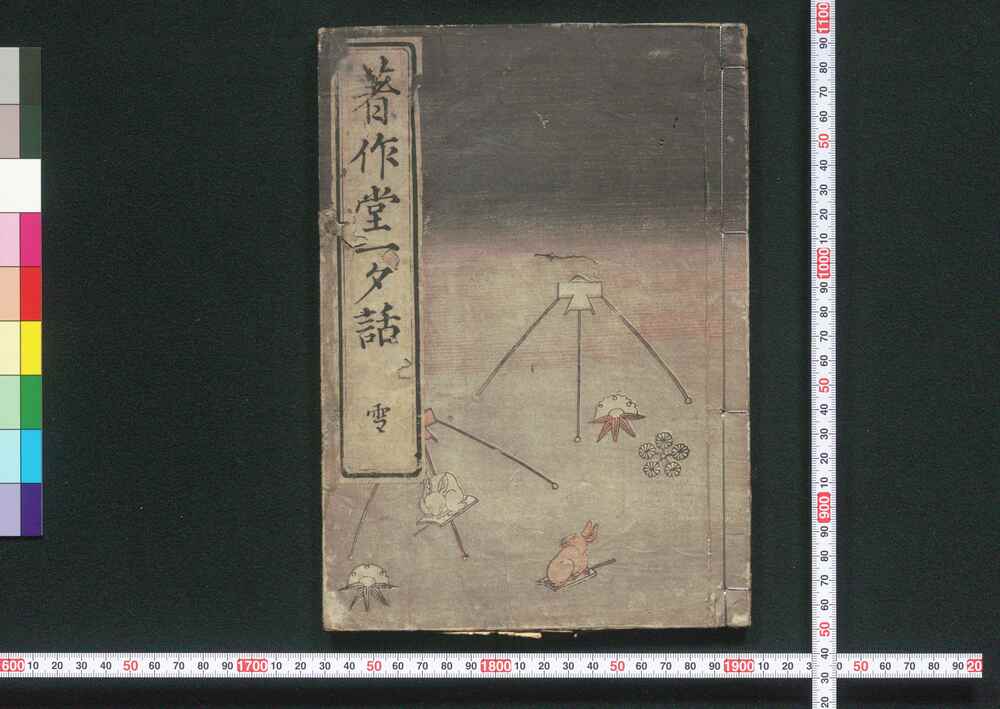 著作堂一夕話
雪
1100
90
80
70
60
50
40
30
20
10
1000
90
80
70
60
50
40
30
20
10
900
90
80
70
60
50
40
30
20
600 10 20 30 40 50 60 70 80 90 1700 10 20 30 40 50 60 70 80 90 1800 10 20 30 40 50 60 70 80 90 1900 10 20 3 0 50 60 70 80 90 20